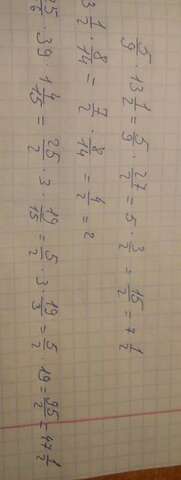 5/9 · 13 1/2 = 5/9 · 27/2 = 5 · 3/2 = 15/2 = 7 1/2
3 1/2 · 8/14 = 7/2 · 8/14 = 4/2 = 2
25/6 · 39 · 1 4/15 = 25/2 · 3 · 19/15 = 5/2 · 3 · 19/3 = 5/2 19 = 95/2 = 47 1/2